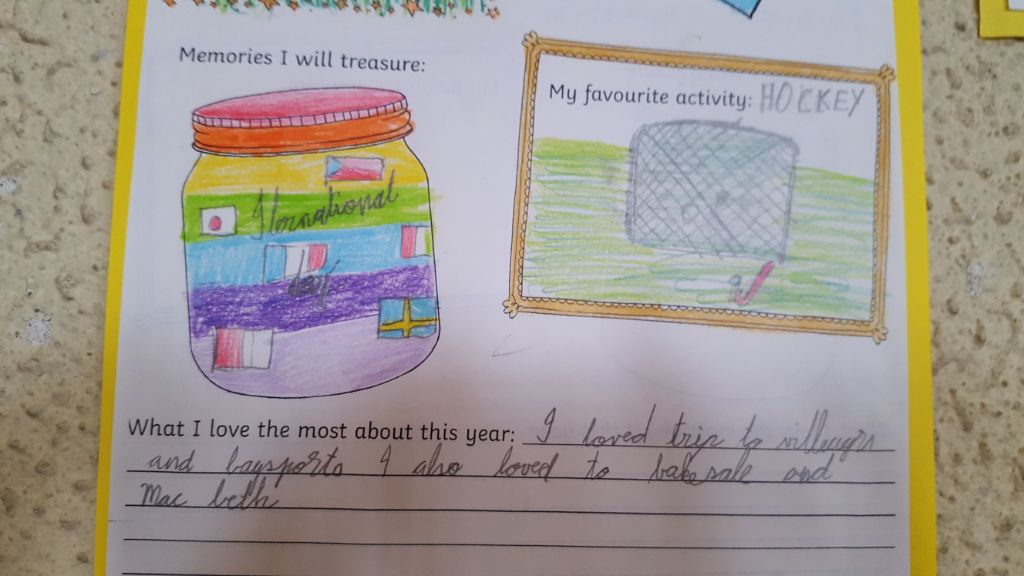 Memories I will treasure:
My favourite activity: HOCKEY
Iternational
day
What I love the most about this year: I loved trip to
and baysports I also loved to bake sale and
Mac beth